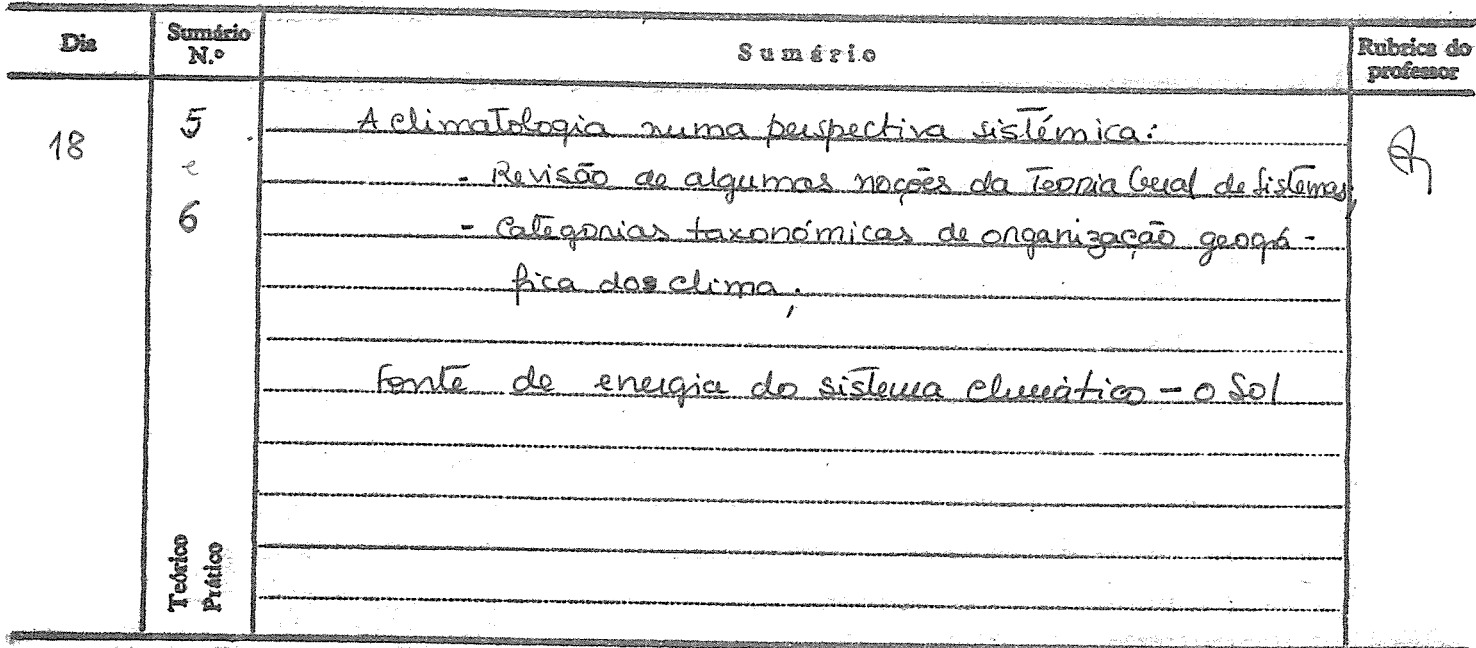 Dia Sumário N.º Sumário Rubrica do professor
18 5 e 6
A climatologia numa perspectiva sistémica:
- Revisão de algumas noções da Teoria Geral de Sistemas;
- Categorias taxonómicas de organização geogá-
fica dos clima;
Fonte de energia do sistema climático - o Sol
Teórico
Prático